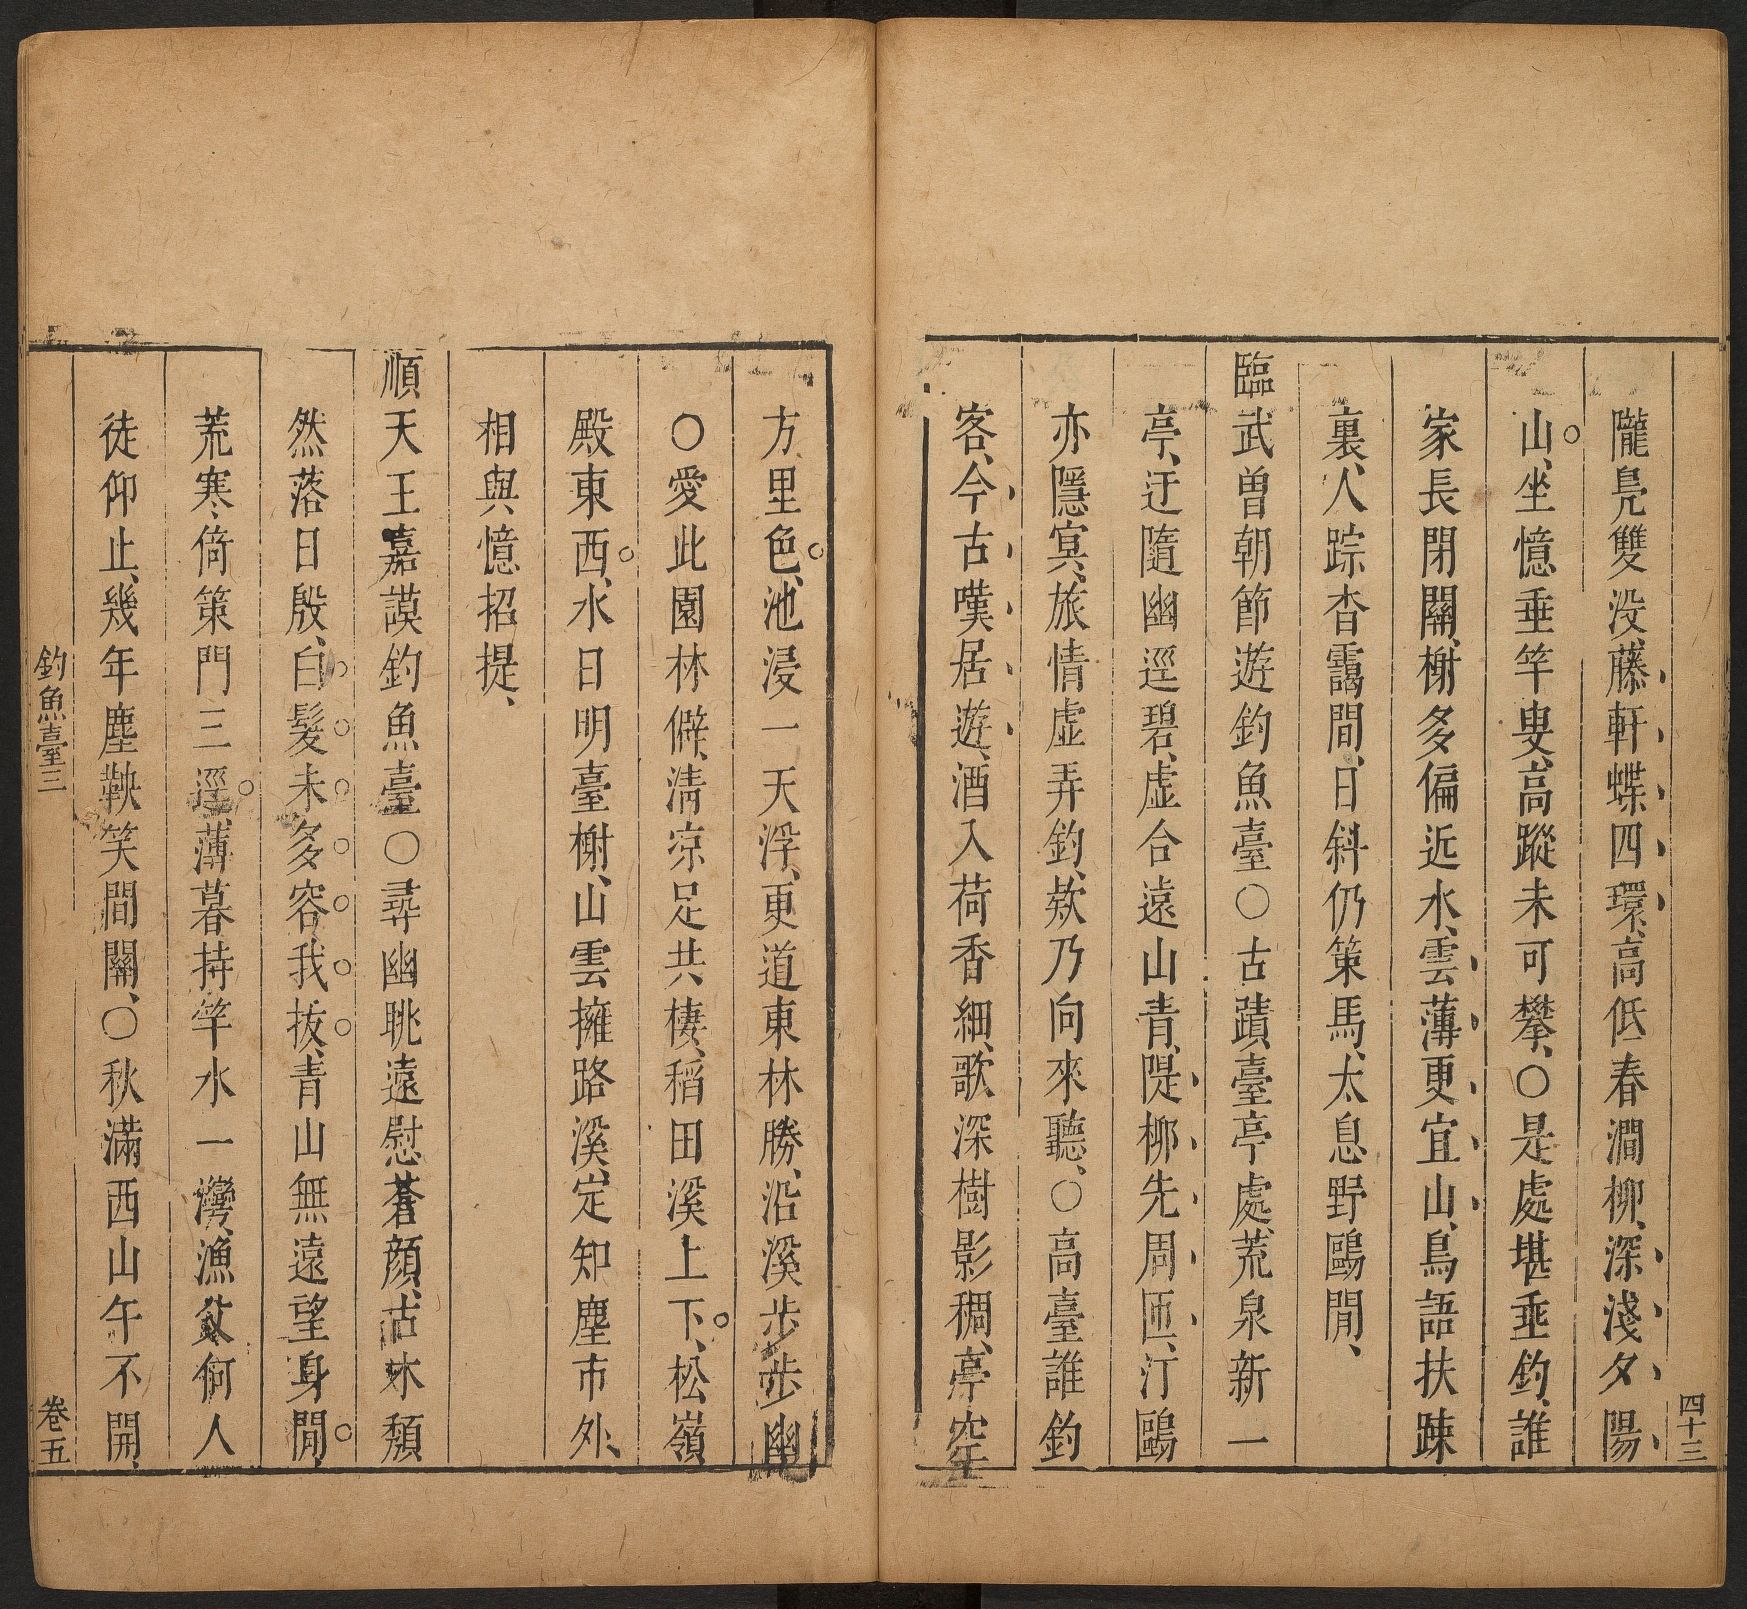 四十三
隴鳧雙没、藤軒蝶四環、高低春澗柳、深淺夕陽
山、坐憶垂竿叟、高蹤未可攀、○是處堪垂釣、誰
家長閉關、榭多偏近水、雲薄更宜山、鳥語扶踈
裏、人踪杳靄間、日斜仍策馬、太息野鷗閒、
臨武曾朝節遊釣魚臺○古蹟臺亭處、荒泉新一
亭、迂隨幽逕碧、虛合遠山青、隄柳先周匝、汀鷗
亦隱冥、旅情虛弄釣、欸乃向來聽、○高臺誰釣
客、今古嘆居遊、酒入荷香細、歌深樹影稠、亭空
方里色、池浸一天浮、更道東林勝、沿溪步步幽
○愛此園林僻、清凉足共棲、稻田溪上下、松嶺
殿東西、水日明臺榭、山雲擁路溪、定知塵市外、
相與憶招提、
順天王嘉謨釣魚臺○尋幽眺遠慰蒼顏、古木頹
然落日殷、白髮未多容我拔、青山無遠望身閒、
荒寒倚策門三逕、薄暮持竿水一灣、漁父何人
徒仰止、幾年塵鞅笑間關、○秋滿西山午不開、
釣魚臺三
卷五